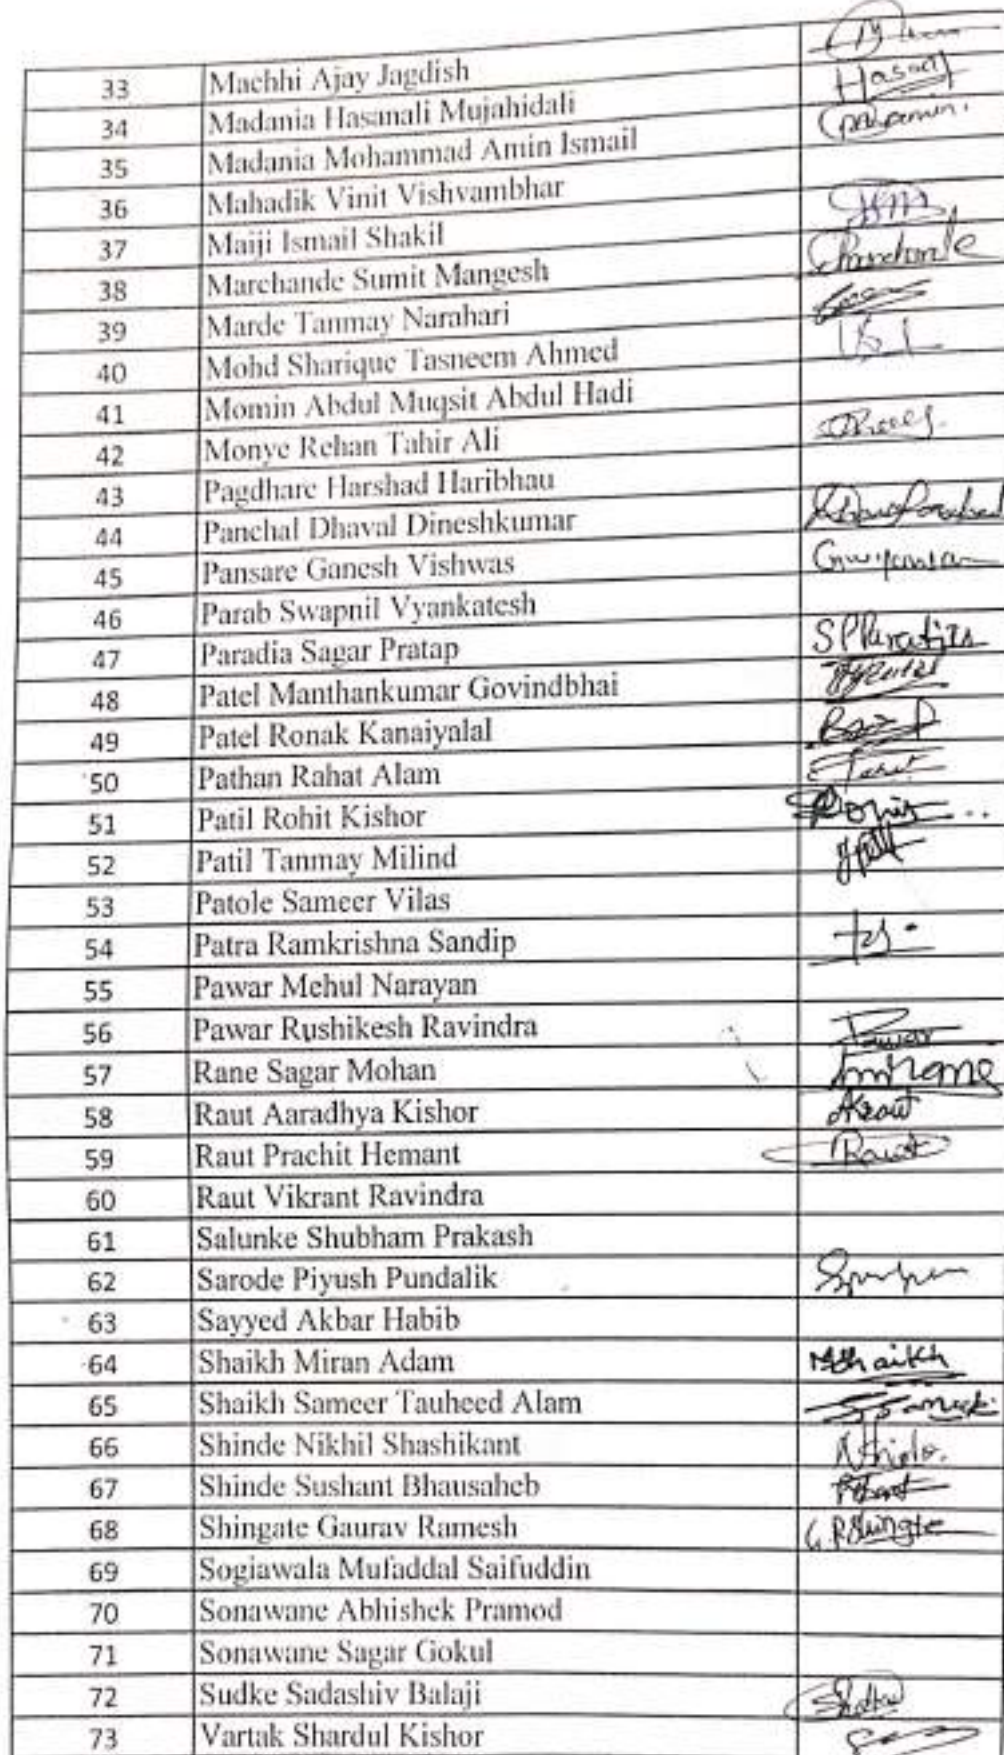 33 Machhi Ajay Jagdish
34 Madania Hasanali Mujahidali Hasnaj
35 Madania Mohammad Amin Ismail
36 Mahadik Vinit Vishvambhar
37 Maiji Ismail Shakil
38 Marchande Sumit Mangesh
39 Marde Tanmay Narahari
40 Mohd Sharique Tasneem Ahmed
41 Momin Abdul Muqsit Abdul Hadi
42 Monye Rehan Tahir Ali
43 Pagdhare Harshad Haribhau
44 Panchal Dhaval Dineshkumar
45 Pansare Ganesh Vishwas
46 Parab Swapnil Vyankatesh
47 Paradia Sagar Pratap
48 Patel Manthankumar Govindbhai
49 Patel Ronak Kanaiyalal
50 Pathan Rahat Alam
51 Patil Rohit Kishor
52 Patil Tanmay Milind
53 Patole Sameer Vilas
54 Patra Ramkrishna Sandip
55 Pawar Mehul Narayan
56 Pawar Rushikesh Ravindra Pawar
57 Rane Sagar Mohan
58 Raut Aaradhya Kishor AKraut
59 Raut Prachit Hemant Raut
60 Raut Vikrant Ravindra
61 Salunke Shubham Prakash
62 Sarode Piyush Pundalik
63 Sayyed Akbar Habib
64 Shaikh Miran Adam MShaikh
65 Shaikh Sameer Tauheed Alam
66 Shinde Nikhil Shashikant
67 Shinde Sushant Bhausaheb
68 Shingate Gaurav Ramesh
69 Sogiawala Mufaddal Saifuddin
70 Sonawane Abhishek Pramod
71 Sonawane Sagar Gokul
72 Sudke Sadashiv Balaji
73 Vartak Shardul Kishor